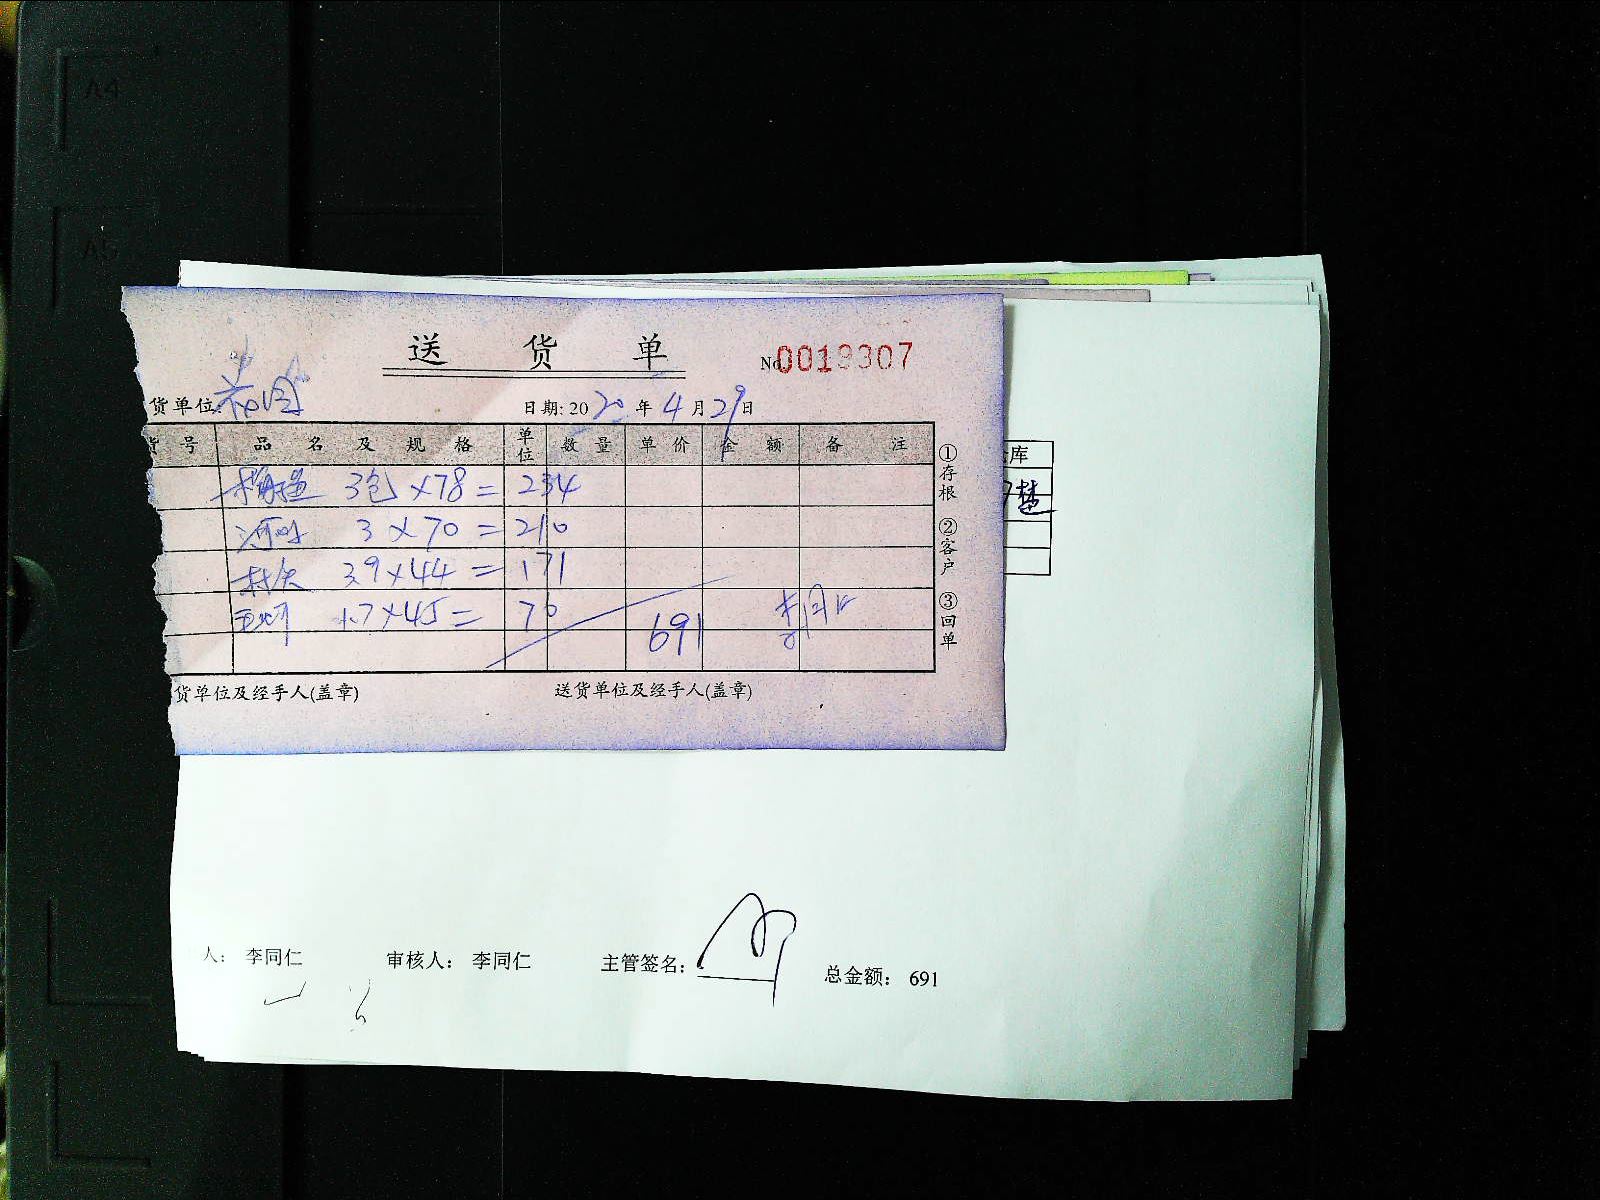 A4
A5
送货单
No 0019307
货单位:
日期: 2020年4月29日
货号 品名及规格 单位 数量 单价 金额 备注
3包×78=234
3×70=210
3.9×44=171
1.7×45=76
691
①存根
②客户
③回单
货单位及经手人(盖章) 送货单位及经手人(盖章)
库
人: 李同仁 审核人: 李同仁 主管签名: 总金额: 691